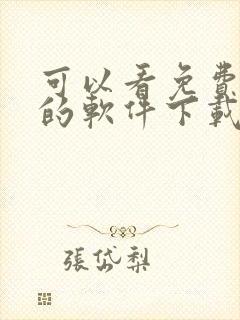 可以看免費
的軟件下載
張岱梨